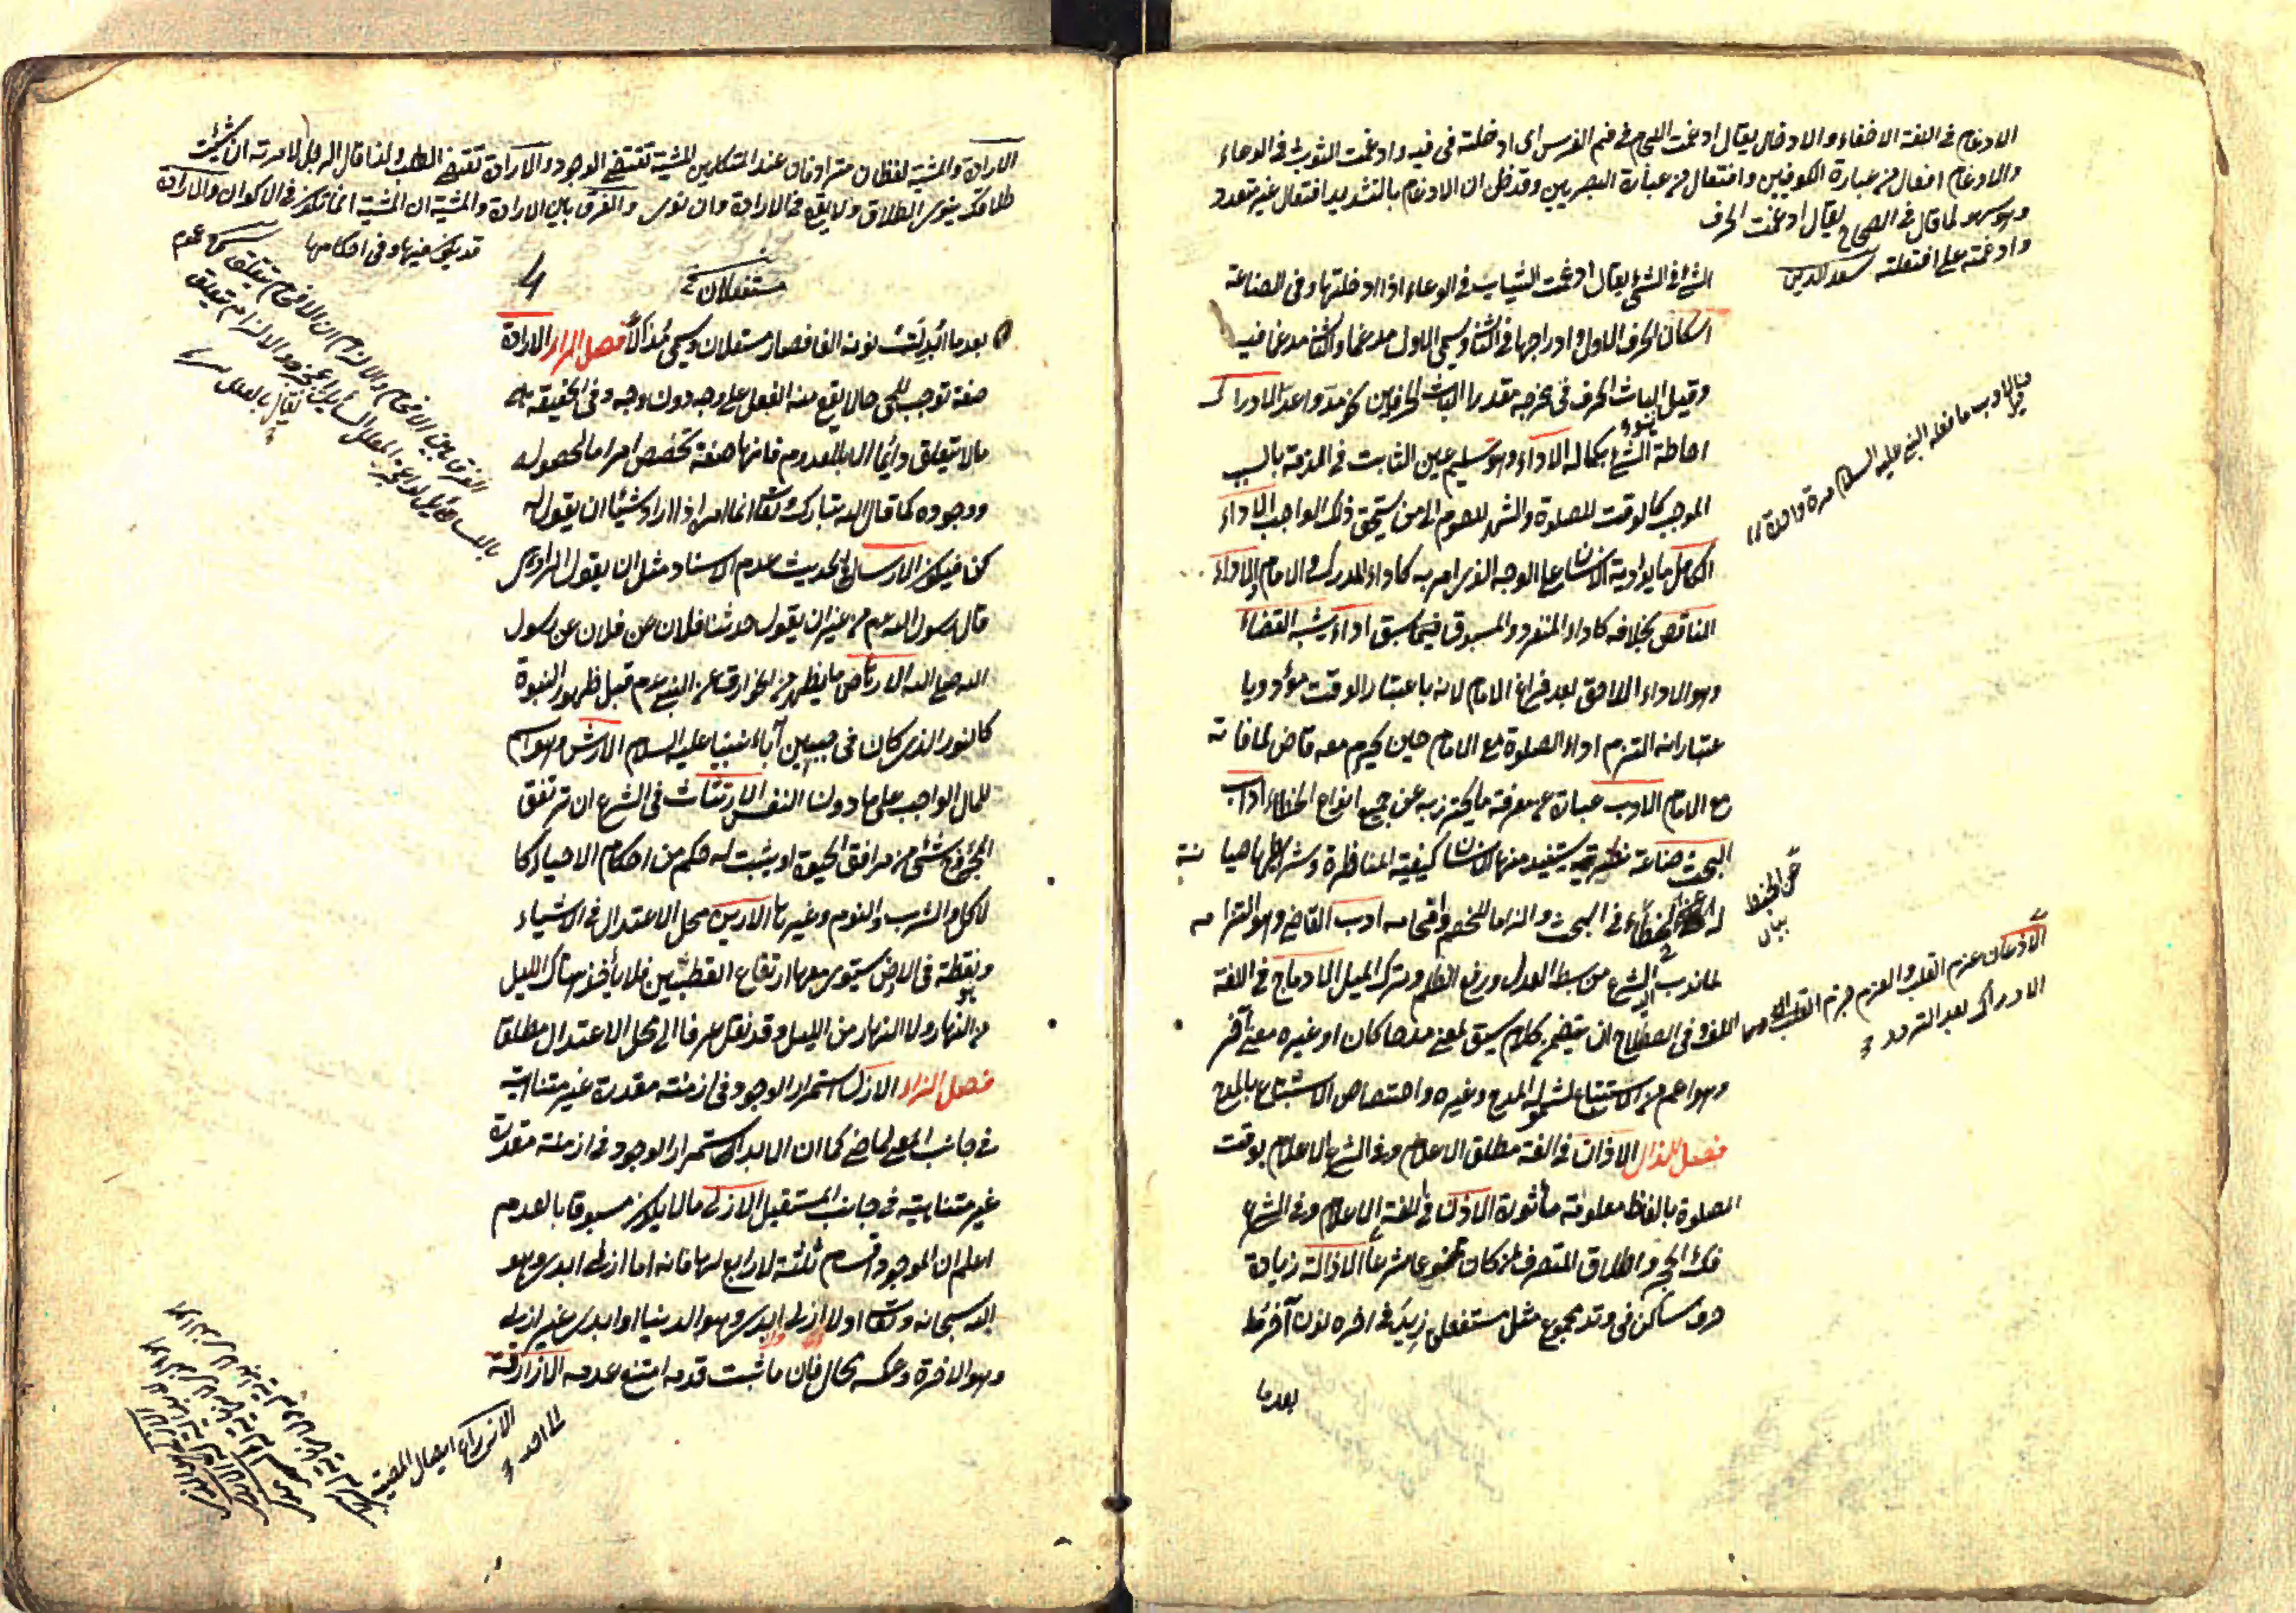 الادغام في اللغة الاخفاء والادخال يقال ادغمت اللجام في فم الفرس اى ادخلته في فيه وادغمت الثوب في الوعاء
والادغام افعال من عبارة الكوفيين وافتعال من عبارة البصريين وقد ظن ان الادغام بالتشديد افتعال غير متعد
وهو سهو لما قال في الصحاح يقال ادغمت الحرف
وادغمته على افتعلته سعد الدين
الشئ في الشئ يقال ادغمت الثياب في الوعاء اذا ادخلتها وفي الصناعة
اسكان الحرف الاول وادراجها في الثاني ويسمى الاول مدغما والثاني مدغما فيه
وقيل الباث الحرف في مخرجه مقدار الباث الحرفين نحو مد واعد الادراك
احاطة الشئ بكماله الاداء وهو تسليم عين الثابت في الذمة بالسبب
الموجب كالوقت للصلوة والشهر للصوم الى من يستحق ذلك الواجب الاداء
الكامل ما يؤديه الانسان على الوجه الذى امر به كاداء المدرك والامام الاداء
الناقص بخلافه كاداء المنفرد والمسبوق فيما سبق اداء يشبه القضاء
وهو الاداء اللاحق بعد فراغ الامام لانه باعتبار الوقت مؤد وبا
عتبار انه التزم اداء الصلوة مع الامام حين يحرم معه قاض لما فاته
مع الامام الادب عبارة عن معرفة ما يحترز به عن جميع انواع الخطاء اداب
البحث صناعة نظرية يستفيد منها الانسان كيفية المناظرة وشرائطها صيانة
له عن الخطاء في البحث والزاما للخصم وافحامه ادب القاضى وهو التزامه
لما ندب اليه الشرع من بسط العدل ورفع الظلم وترك الميل الادماج في اللغة
اللف وفي الاصطلاح ان يتضمن كلام سيق لمعنى مدحا كان او غيره معنى آخر
وهو اعم من الاستتباع لشموله المدح وغيره واختصاص الاستتباع بالمدح
فصل الذال الاذان في اللغة مطلق الاعلام وفي الشرع الاعلام بوقت
الصلوة بالفاظ معلومة مأثورة الاذن في اللغة الاعلام وفي الشرع
فك الحجر واطلاق التصرف لمن كان ممنوعا شرعا الاذالة زيادة
حرف ساكن في وتد مجموع مثل مستفعلن زيد في اخره نون آخر
بعد ما
من الادب ما فعله النبي عليه السلام مرة واحدة
عن الخبط
بيان
الاذعان عزم القلب والعزم جزم
الادراك بعد التردد
الارادة والمشية لفظان مترادفان عند المتكلمين المشية تقتضى الوجود والارادة تقتضى الطلب ولهذا قال الرجل لامرته ان شئت
طلاقك ينوى الطلاق ولا يقع في الارادة وان نوى والفرق بين الارادة والمشية ان المشية انما تكون في الاكوان والارادة
قد يكون فيها وفي احكامها
4
مستفعلان
بعد ما ابدلت نونه الفا فصار مستفعلان ويسمى مذالا فصل الراء الارادة
صفة توجب للحى حالا يقع منه الفعل على وجه دون وجه وفي الحقيقة هى
ما لا يتعلق دائما الا بالمعدوم فانها صفة تخصص امرا ما لحصوله
ووجوده كما قال الله تبارك وتعالى انما امره اذا اراد شيئا ان يقول له
كن فيكون الارسال في الحديث عدم الاسناد مثل ان يقول الراوى
قال رسول الله عم من غير ان يقول حدثنا فلان عن فلان عن رسول
الله صلى الله الارهاص ما يظهر من الخوارق عن النبى عم قبل ظهور النبوة
كالنور الذى كان في جبين آباء نبينا عليه السلام الارش وهو اسم
للمال الواجب على ما دون النفس الارتثاث في الشرع ان ترتفق
المجروح شئ من مرافق الحيوة او يثبت له حكم من احكام الاحياء كا
لاكل والشرب والنوم وغيرها الارين محل الاعتدال في الاشياء
ونقطة في الارض يستوى معها ارتفاع القطبين فلا يأخذ هناك الليل
من النهار ولا النهار من الليل وقد نقل عرفا الى محل الاعتدال مطلقا
فصل الزاء الازل استمرار الوجود في ازمنة مقدرة غير متناهية
في جانب الماضى كما ان الابد استمرار الوجود في ازمنة مقدرة
غير متناهية في جانب المستقبل الازلى ما لا يكون مسبوقا بالعدم
اعلم ان الموجود اقسام ثلثة لا رابع لها فانه اما ازلى ابدى وهو
الله سبحانه وتعالى اولا ازلى ابدى وهو الدنيا او ابدى غير ازلى
وهو الاخرة وعكسه محال فان ما ثبت قدمه امتنع عدمه الازارقة